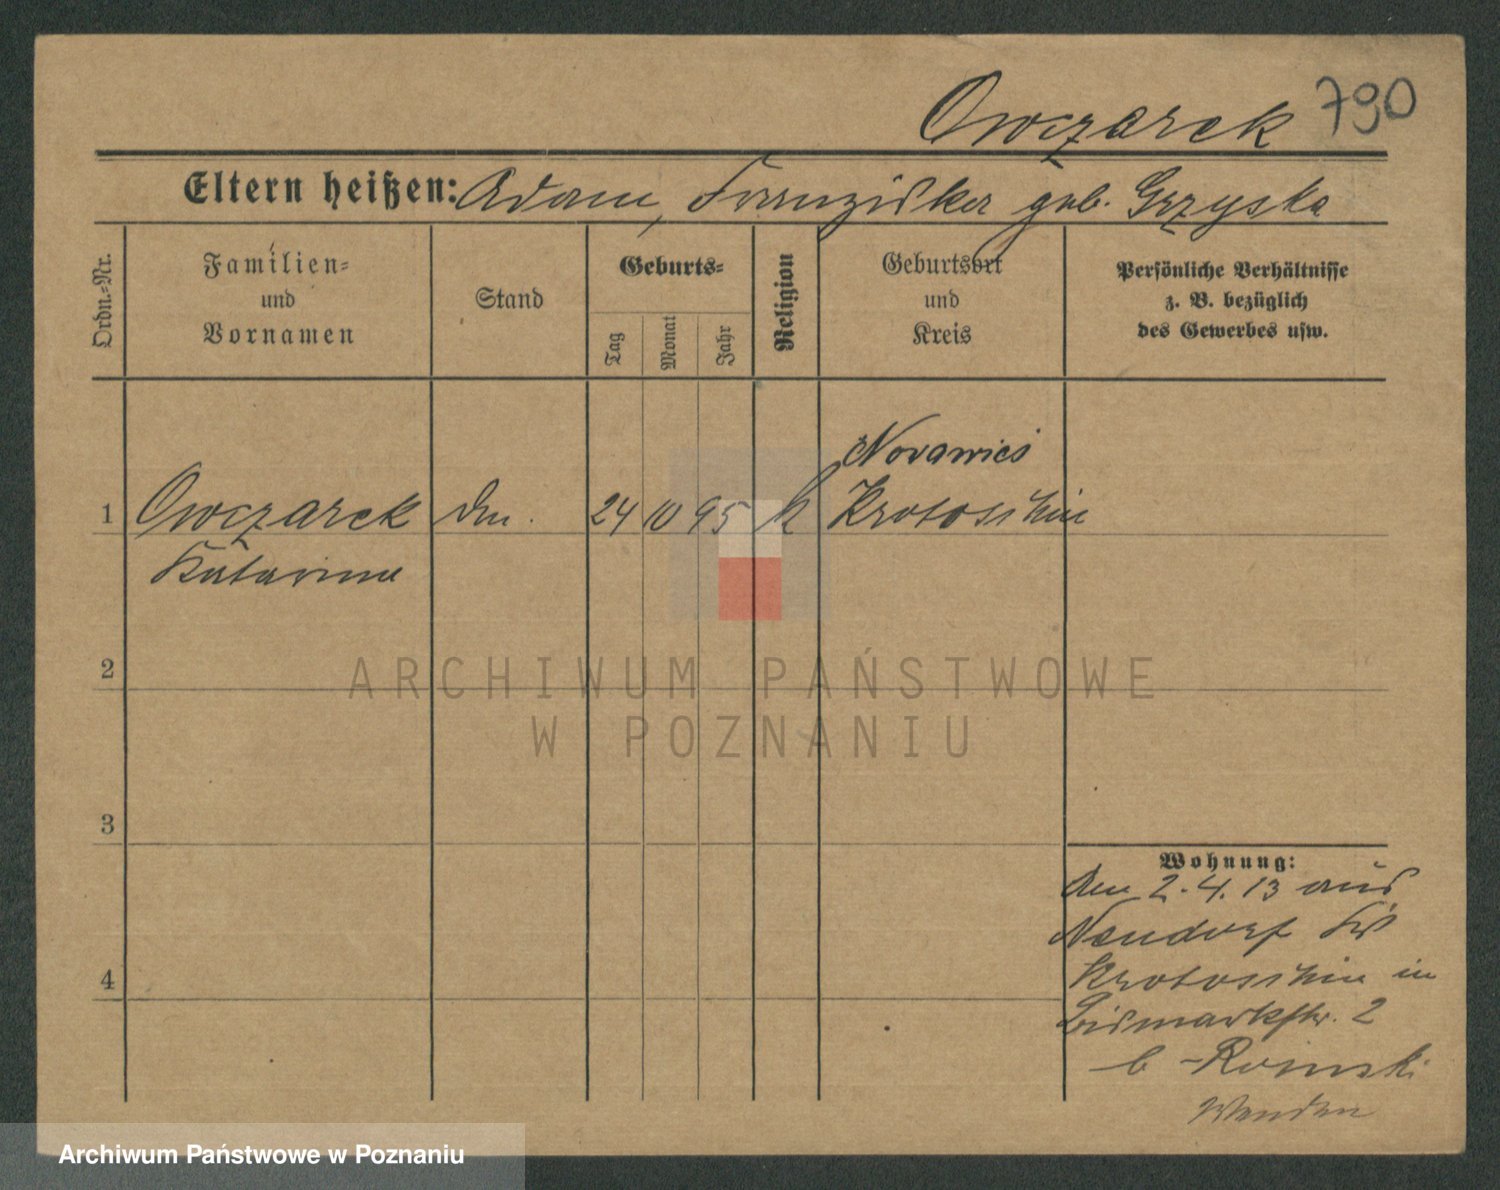 Owczarek 790
Eltern heißen: Adam, Franziska geb. Grzyska
Ordn.-Nr.
Familien-
und
Vornamen
Stand
Geburts-
Tag
Monat
Jahr
Religion
Geburtsort
und
Kreis
Persönliche Verhältnisse
z. B. bezüglich
des Gewerbes usw.
Novawies
1 Owczarek 24 10 95 k Krotoschin
Katarina
2
ARCHIWUM PAŃSTWOWE
W POZNANIU
3
Wohnung:
Am 2.4.13 aus
Neudorf Krs
4 Krotoschin in
Bismarkstr. 2
b
Wenden
Archiwum Państwowe w Poznaniu